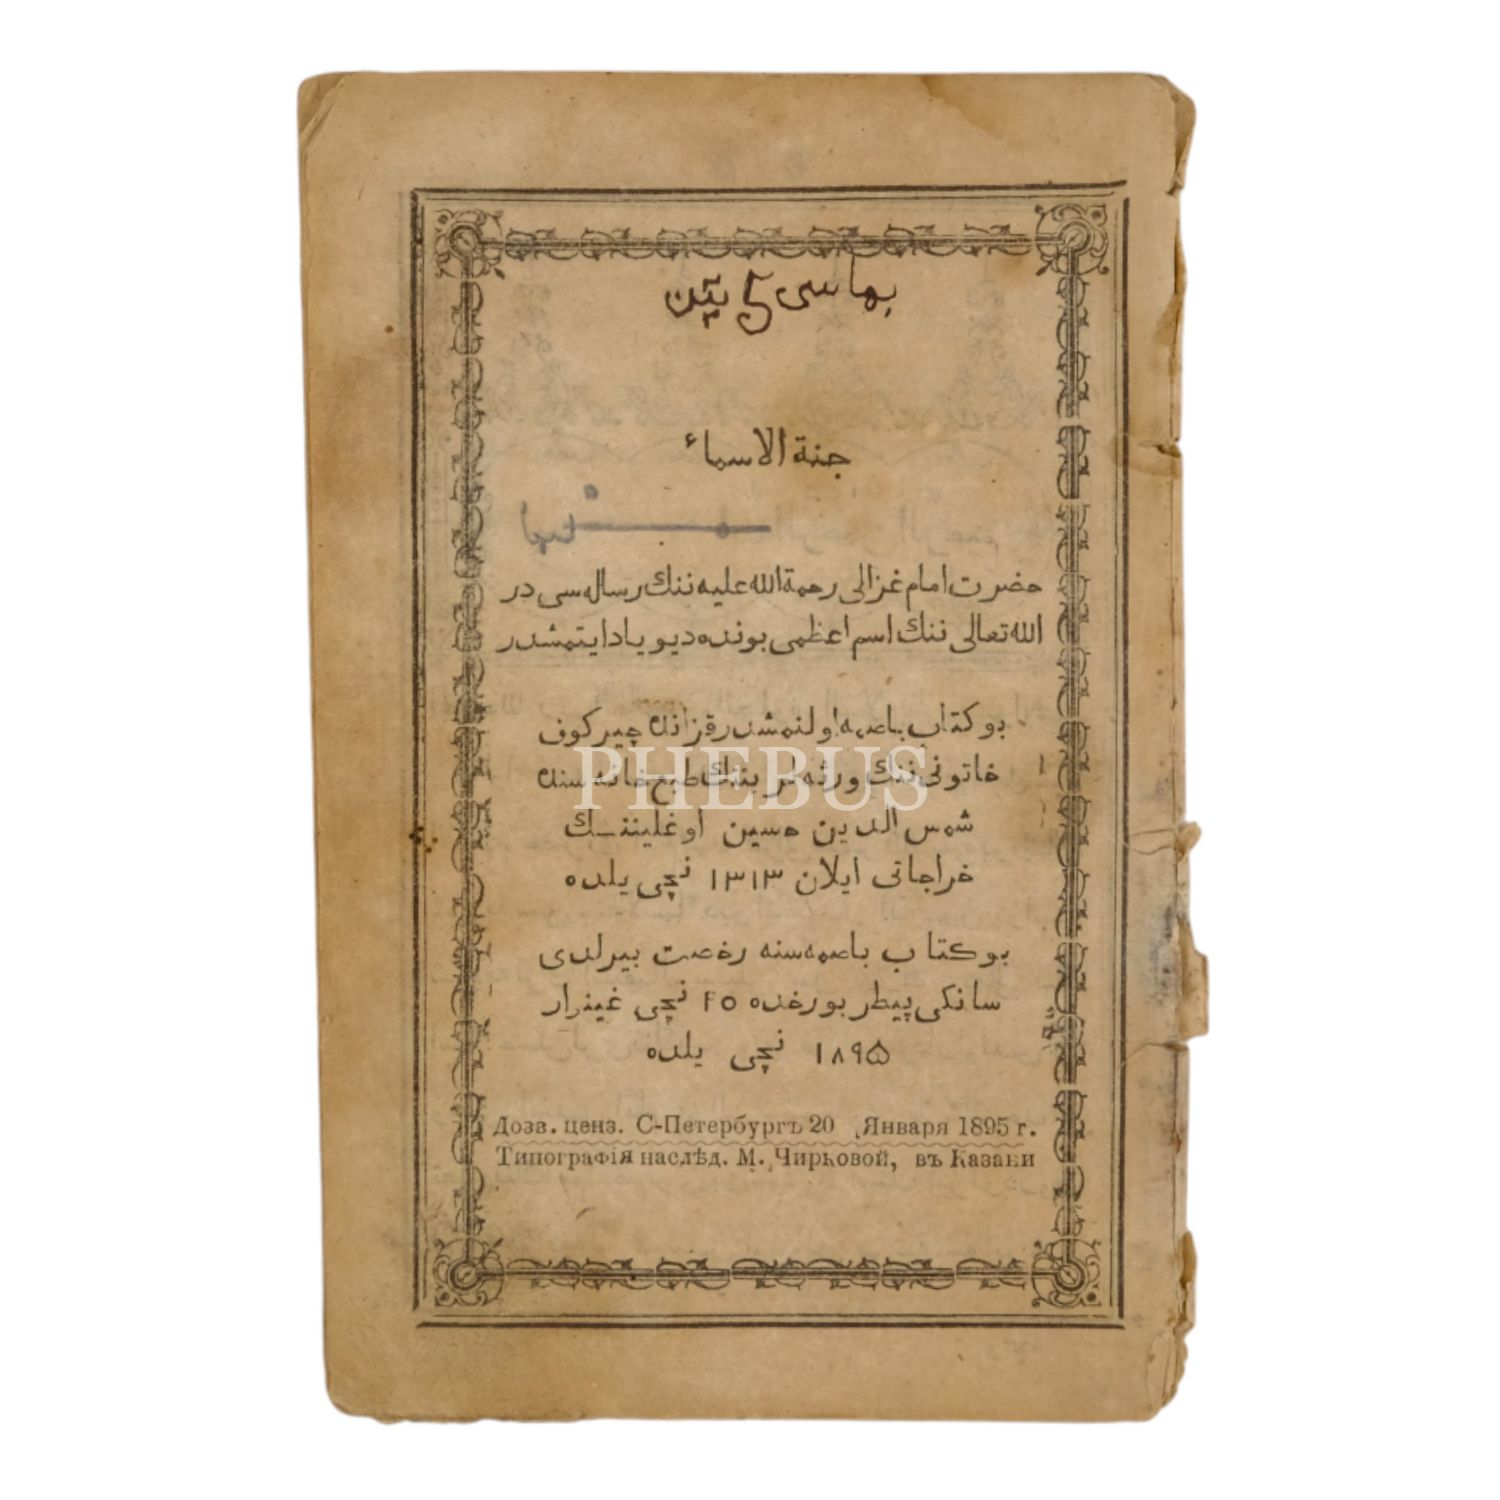 بهاسی 5 یتن
جنة الاسماء
حضرت امام غزالی رحمة الله علیه ننك رساله سی در
الله تعالی ننك اسم اعظمی بونده دیو یاد ایتمشدر
بو كتاب باصمه اولنمشدر قزانده چیركوف
خاتونی ننك ورثه لرینك طبع خانه سنده
شمس الدین حسین اوغلیننك
خراجاتی ایلان ١٣١٣ نچی یلده
بو كتاب باصمه سنه رخصت بیرلدی
سانكی پیطربورخده ٢٥ نچی غینوار
١٨٩٥ نچی یلده
Дозв. ценз. С-Петербургъ 20 Января 1895 г.
Типографія наслѣд. М. Чирковой, въ Казани
PHEBUS